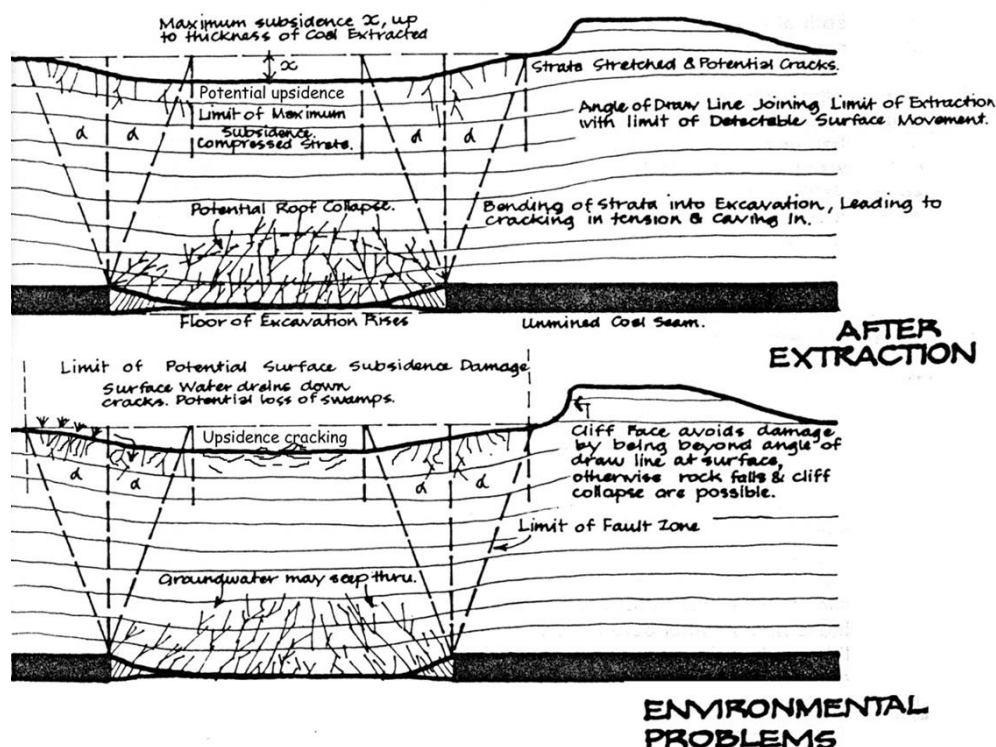 Maximum subsidence x, up
to thickness of Coal Extracted
x
Strata Stretched & Potential Cracks.
Potential upsidence
Limit of Maximum
Subsidence.
Compressed Strata.
Angle of Draw Line Joining Limit of Extraction
with limit of Detectable Surface Movement.
α α α α
Potential Roof Collapse.
Bending of Strata into Excavation, Leading to
cracking in tension & Caving In.
Floor of Excavation Rises
Unmined Coal Seam.
AFTER
EXTRACTION
Limit of Potential Surface Subsidence Damage
Surface Water drains down
cracks. Potential loss of swamps.
Upsidence cracking
Cliff Face avoids damage
by being beyond angle of
draw line at surface,
otherwise rock falls & cliff
collapse are possible.
α α α α
Limit of Fault Zone
Groundwater may seep thru.
ENVIRONMENTAL
PROBLEMS